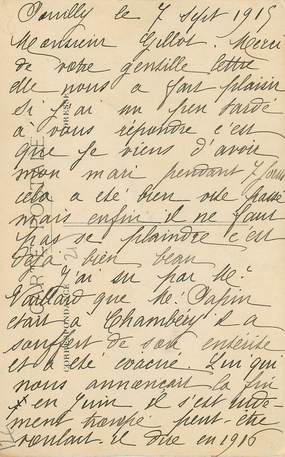 Pouilly le 7 sept 1915
Monsieur Gillot. Merci
de votre gentille lettre
elle nous a fait plaisir
si j'ai un peu tardé
a vous répondre c'est
que je viens d'avoir
mon mari pendant 7 jours
cela a été bien vite passé
mais enfin il ne faut
pas se plaindre c'est
déjà bien beau
J'ai su par Mr
Vaillard que Mr Papin
était a Chambéry il a
souffert de son entérite
et a été évacué. Lui qui
nous annonçait la fin
en Juin il s'est
ment trompé peut-être
voulait-il dire en 1916
CARTE POSTALE
CORRESPONDANCE